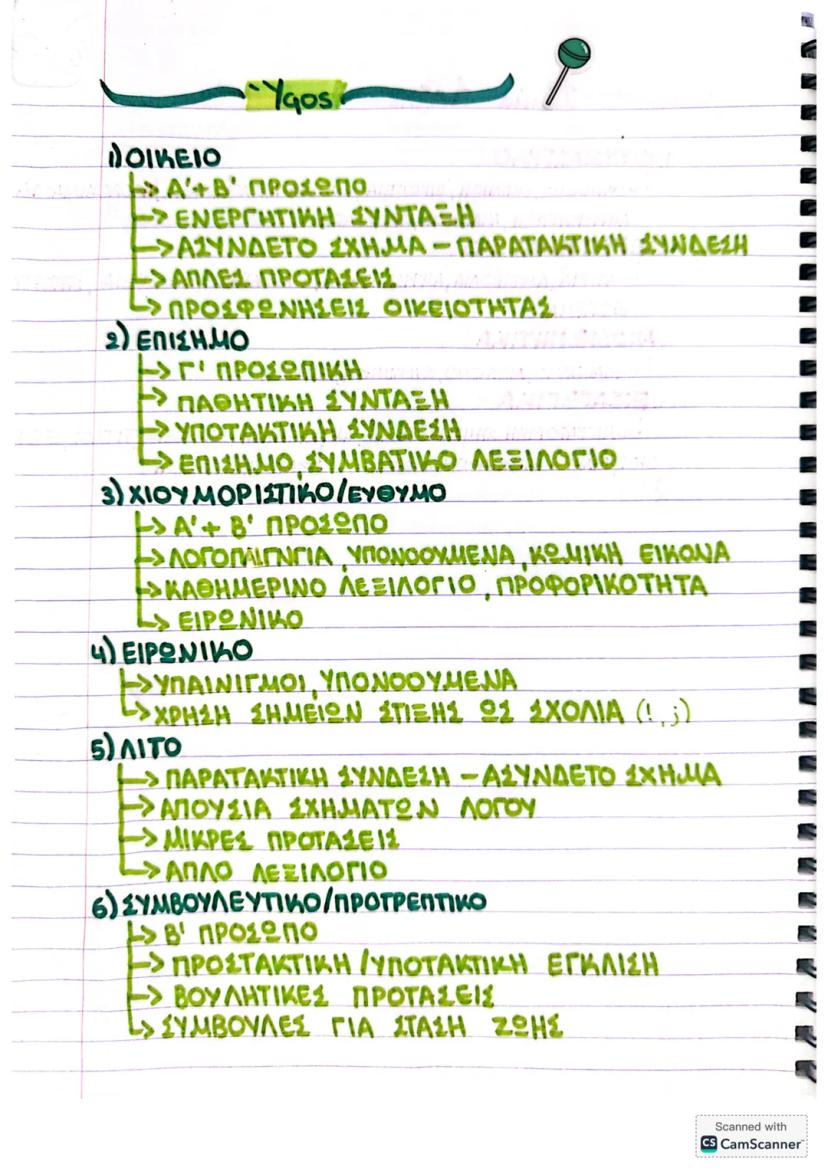 Ύφος
1) ΟΙΚΕΙΟ
→ Α'+ Β' ΠΡΟΣΩΠΟ
→ ΕΝΕΡΓΗΤΙΚΗ ΣΥΝΤΑΞΗ
→ ΑΣΥΝΔΕΤΟ ΣΧΗΜΑ – ΠΑΡΑΤΑΚΤΙΚΗ ΣΥΝΔΕΣΗ
→ ΑΠΛΕΣ ΠΡΟΤΑΣΕΙΣ
→ ΠΡΟΣΦΩΝΗΣΕΙΣ ΟΙΚΕΙΟΤΗΤΑΣ
2) ΕΠΙΣΗΜΟ
→ Γ' ΠΡΟΣΩΠΙΚΗ
→ ΠΑΘΗΤΙΚΗ ΣΥΝΤΑΞΗ
→ ΥΠΟΤΑΚΤΙΚΗ ΣΥΝΔΕΣΗ
→ ΕΠΙΣΗΜΟ, ΣΥΜΒΑΤΙΚΟ ΛΕΞΙΛΟΓΙΟ
3) ΧΙΟΥΜΟΡΙΣΤΙΚΟ/ΕΥΘΥΜΟ
→ Α'+ Β' ΠΡΟΣΩΠΟ
→ ΛΟΓΟΠΑΙΓΝΓΙΑ, ΥΠΟΝΟΟΥΜΕΝΑ, ΚΩΜΙΚΗ ΕΙΚΟΝΑ
→ ΚΑΘΗΜΕΡΙΝΟ ΛΕΞΙΛΟΓΙΟ, ΠΡΟΦΟΡΙΚΟΤΗΤΑ
→ ΕΙΡΩΝΙΚΟ
4) ΕΙΡΩΝΙΚΟ
→ ΥΠΑΙΝΙΓΜΟΙ, ΥΠΟΝΟΟΥΜΕΝΑ
→ ΧΡΗΣΗ ΣΗΜΕΙΩΝ ΣΤΙΞΗΣ ΩΣ ΣΧΟΛΙΑ (!, ;)
5) ΛΙΤΟ
→ ΠΑΡΑΤΑΚΤΙΚΗ ΣΥΝΔΕΣΗ – ΑΣΥΝΔΕΤΟ ΣΧΗΜΑ
→ ΑΠΟΥΣΙΑ ΣΧΗΜΑΤΩΝ ΛΟΓΟΥ
→ ΜΙΚΡΕΣ ΠΡΟΤΑΣΕΙΣ
→ ΑΠΛΟ ΛΕΞΙΛΟΓΙΟ
6) ΣΥΜΒΟΥΛΕΥΤΙΚΟ/ΠΡΟΤΡΕΠΤΙΚΟ
→ Β' ΠΡΟΣΩΠΟ
→ ΠΡΟΣΤΑΚΤΙΚΗ/ΥΠΟΤΑΚΤΙΚΗ ΕΓΚΛΙΣΗ
→ ΒΟΥΛΗΤΙΚΕΣ ΠΡΟΤΑΣΕΙΣ
→ ΣΥΜΒΟΥΛΕΣ ΓΙΑ ΣΤΑΣΗ ΖΩΗΣ
Scanned with
CS CamScanner